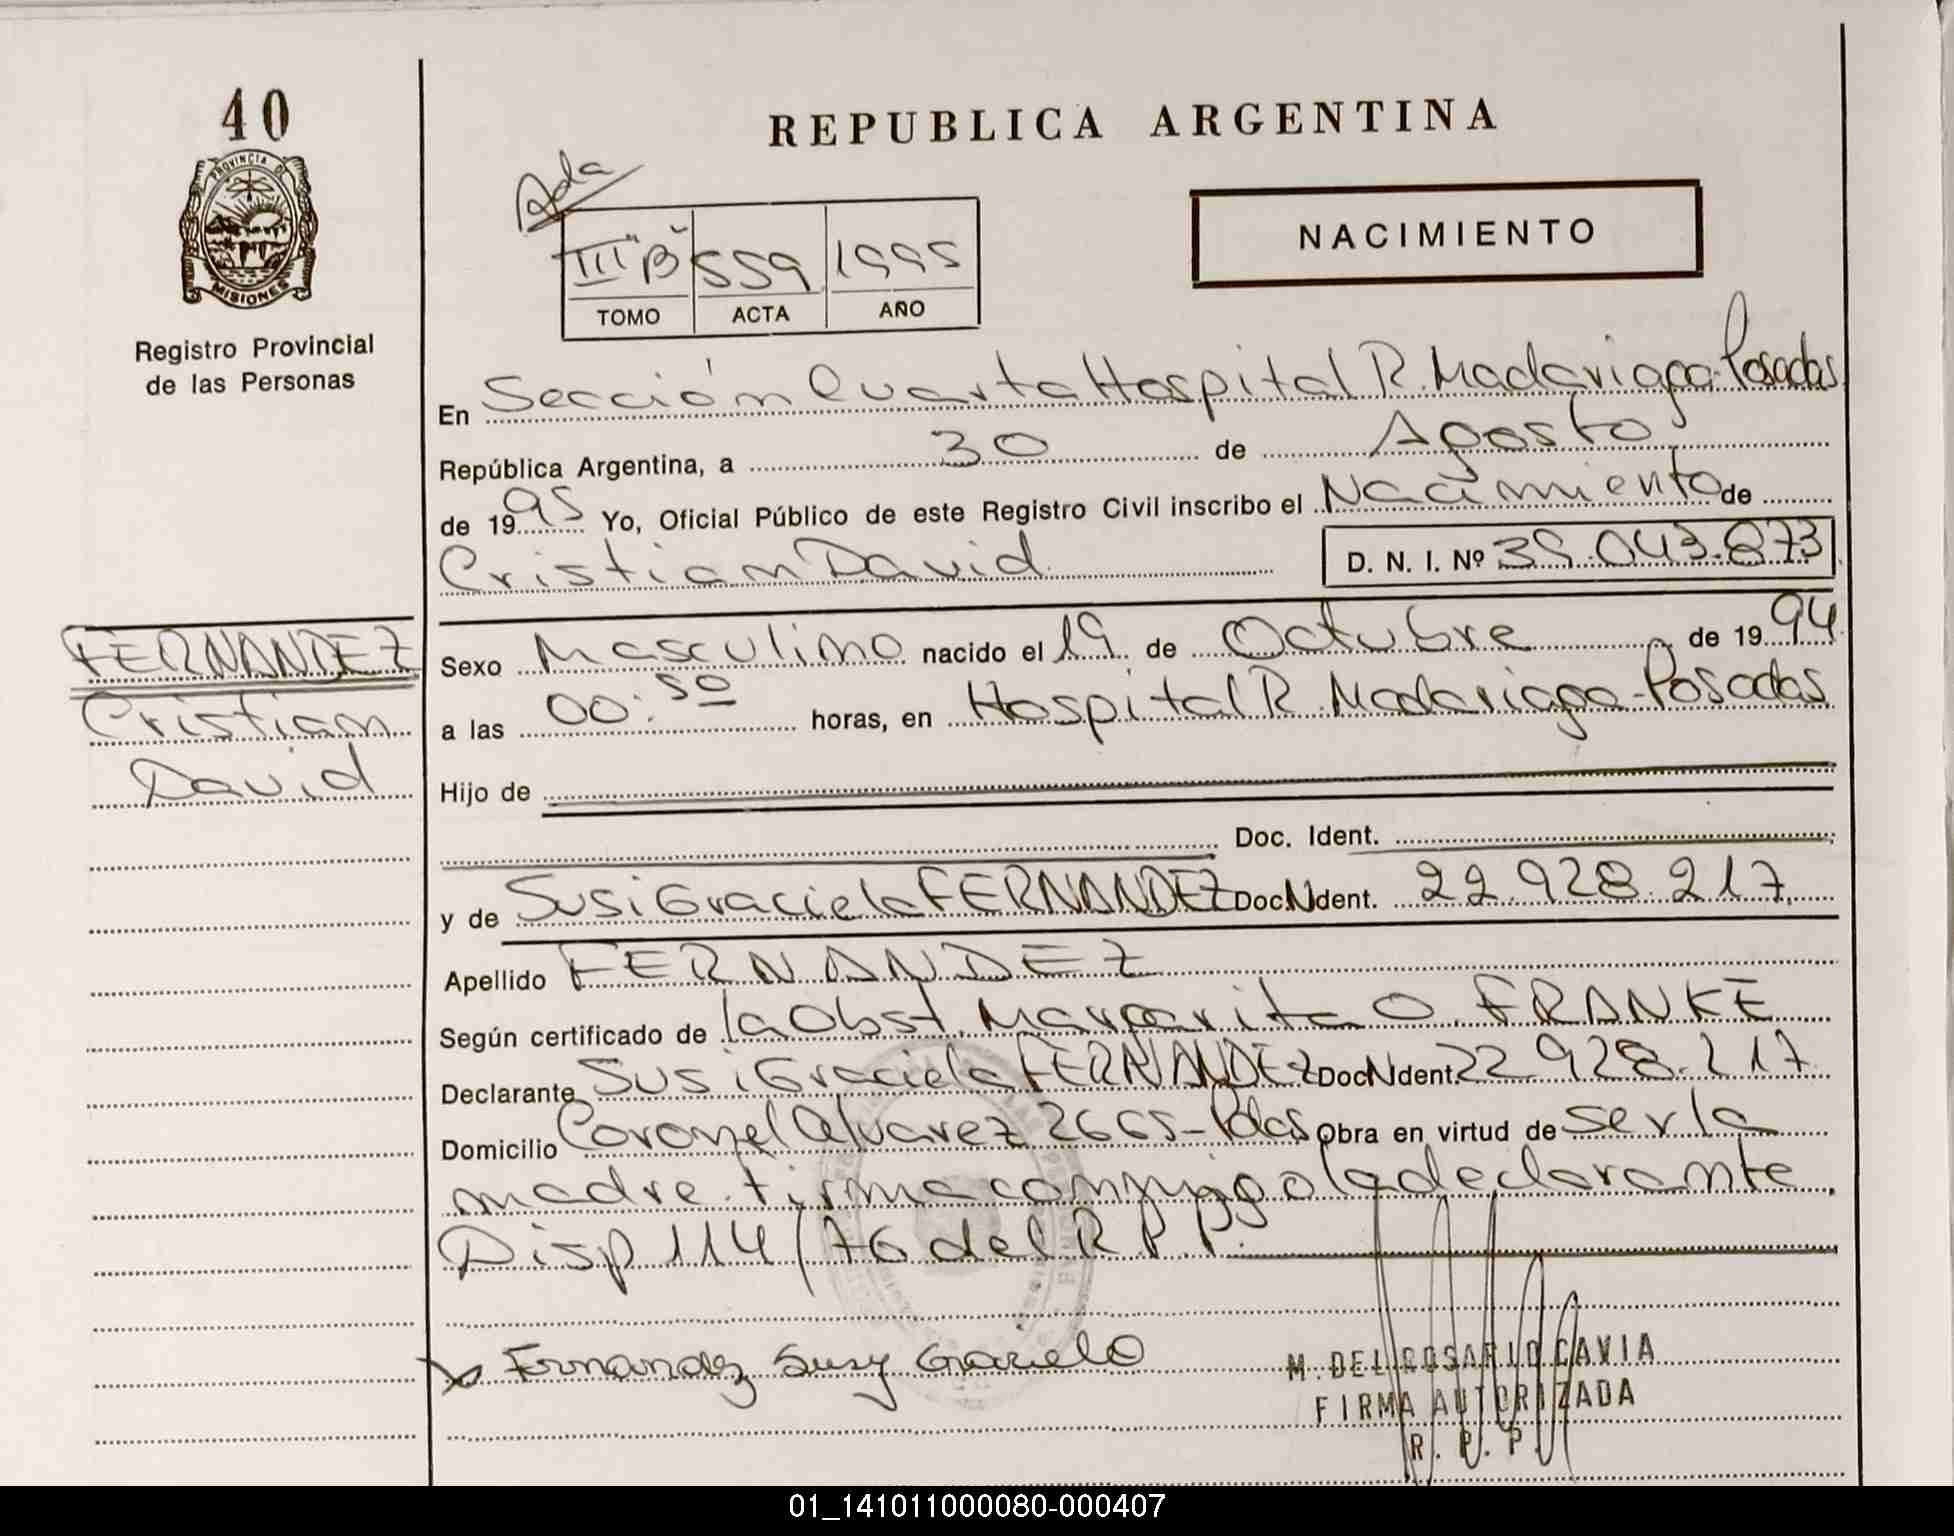 40
REPUBLICA ARGENTINA
PROVINCIA DE
MISIONES
Registro Provincial
de las Personas
Ada
III "B" 559 1995
TOMO ACTA AÑO
NACIMIENTO
En Sección Cuarta Hospital R. Madariaga Posadas
República Argentina, a 30 de Agosto
de 1995 Yo, Oficial Público de este Registro Civil inscribo el Nacimiento de
Cristian David D. N. I. Nº 39.043.873
FERNANDEZ
Cristian
David
Sexo Masculino nacido el 19 de Octubre de 1994
a las 00:50 horas, en Hospital R. Madariaga-Posadas
Hijo de
Doc. Ident.
y de Susi Graciela FERNANDEZ Doc N Ident. 22.928.217
Apellido FERNANDEZ
Según certificado de la Obst. Margarita O. FRANKE
Declarante Susi Graciela FERNANDEZ Doc N Ident. 22.928.217
Domicilio Coronel Alvarez 2665-Pdas Obra en virtud de ser la
madre. firma conmigo la declarante
Disp 114/76 del R P P.
Fernandez Susy Graciela
M. DEL ROSARIO CAVIA
FIRMA AUTORIZADA
R. P. P.
01_141011000080-000407